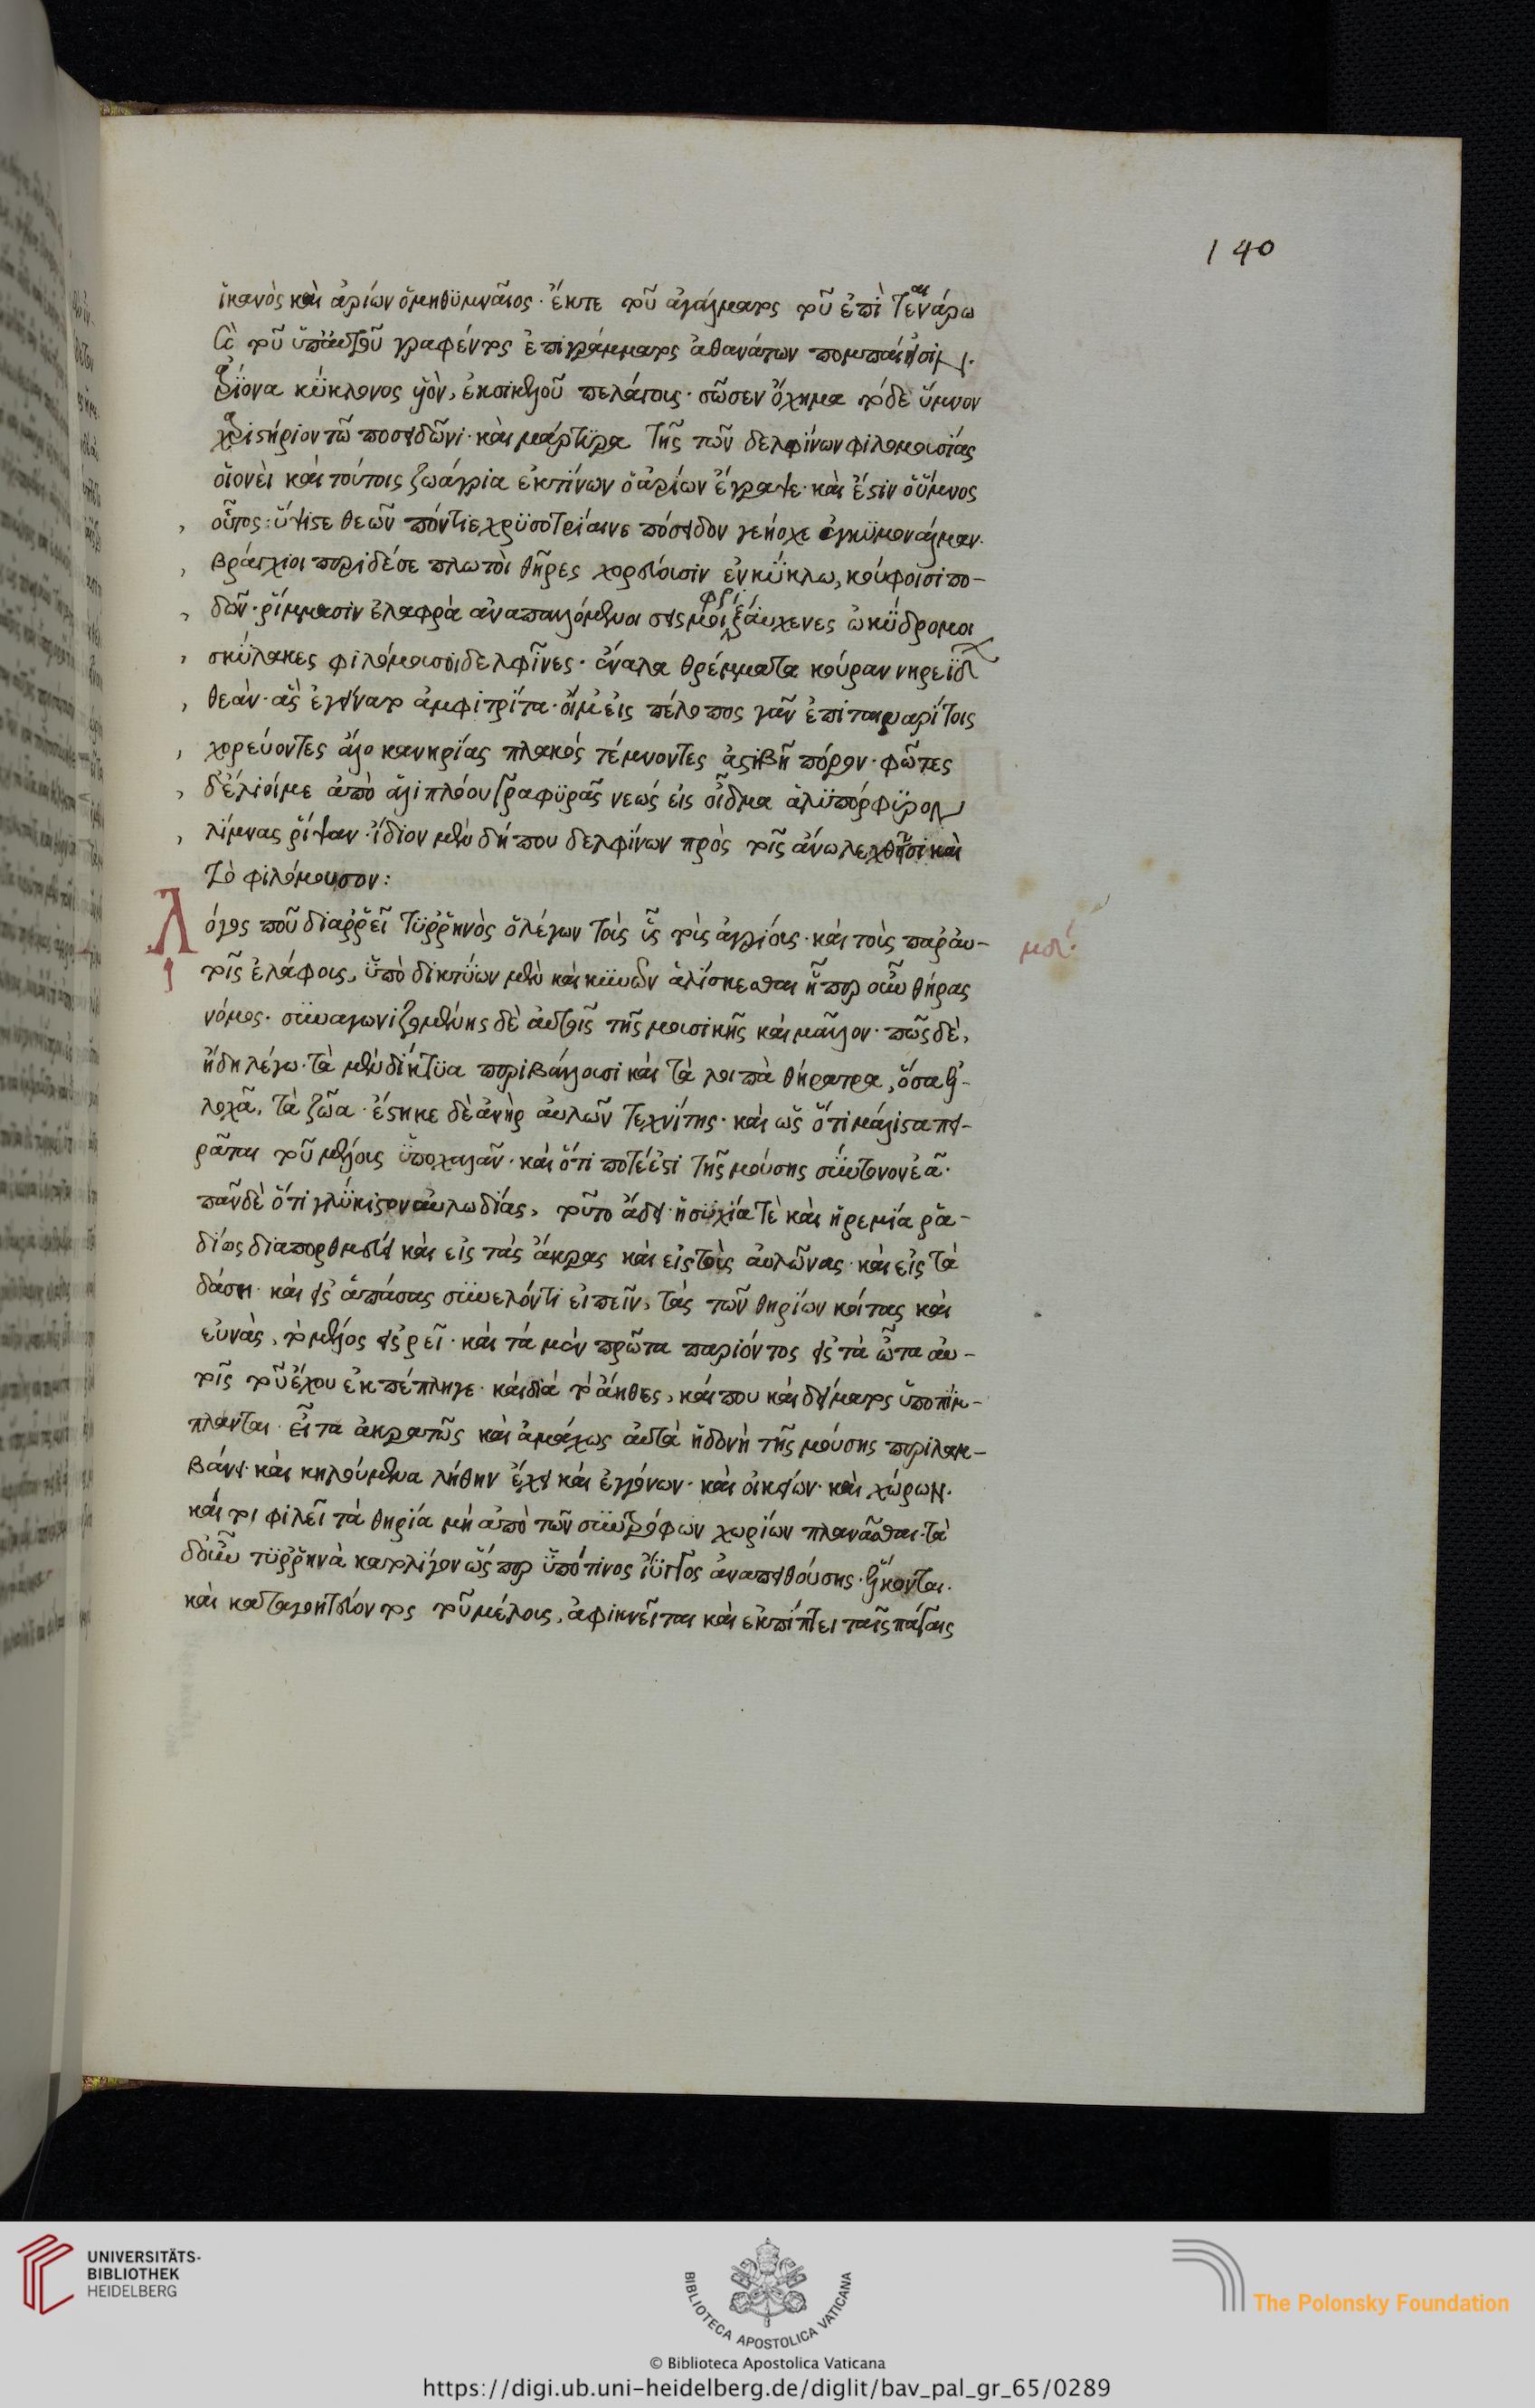 140
ἱκανὸς καὶ ἀρίων ὁ μηθυμναῖος· ἔκ τε τοῦ ἀγάλματος τοῦ ἐπὶ τενάρω
αι
τοῦ ὑπ' αὐτοῦ γραφέντος ἐπιγράμματος ἀθανάτων πομπαῖσιν
ἀρίονα κύκλονος υἱὸν, ἐκ σικελοῦ πελάγους· σῶσεν ὄχημα τόδε ὕμνον
χαριστήριον τῶ ποσειδῶνι· καὶ μάρτυρα τῆς τῶν δελφίνων φιλομουσίας
οἱονεὶ καὶ τούτοις ζωάγρια ἐκτίνων ὁ ἀρίων ἔγραψε· καὶ ἔστιν ὁ ὕμνος
οὗτος: ὕψιστε θεῶν πόντιε χρυσοτρίαινε πόσειδον γεήοχε ἐγκύμον' ἅλμαν·
βράγχιοι περὶ δέ σε πλωτοὶ θῆρες χορεύουσιν ἐν κύκλω, κούφοισι πο-
δῶν· ῥίμμασιν ἐλαφρὰ ἀναπαλλόμενοι σεις μοι ξάυχενες ὠκύδρομοι
φρί
σκύλακες φιλόμουσοι δελφῖνες· ἔναλα θρέμματα κούραν νηρεΐδ
θεὰν· ἃς ἐγείνατο ἀμφιτρίτα· οἵ μ' εἰς πέλοπος γᾶν ἐπὶ ταιναρίαις
χορεύοντες ἄλοκα νηρίας πλακὸς τέμνοντες ἀστιβῆ πόρον· φῶτες
δόλιοί με ἀπὸ ἁλιπλόου γλαφυρᾶς νεώς εἰς οἶδμα ἁλιπόρφυρον
λίμνας ῥίψαν· ἴδιον μὲν δήπου δελφίνων πρὸς τοῖς ἄνω λεχθεῖσι καὶ
τὸ φιλόμουσον:
Λόγος που διαρρεῖ τυρρηνὸς ὁ λέγων τοὺς ὗς τοὺς ἀγρίους· καὶ τοὺς παρ' αὐ- μδ΄·
τοῖς ἐλάφους, ὑπὸ δικτύων μὲν καὶ κυνῶν ἁλίσκεσθαι ᾗπερ οὖν θήρας
νόμος· συναγωνιζομένης δὲ αὐτοῖς τῆς μουσικῆς καὶ μᾶλλον· πῶς δὲ,
ἤδη λέγω· τὰ μὲν δίκτυα περιβάλλουσι καὶ τὰ λοιπὰ θήρατρα, ὅσα ἐλ-
λοχᾶ, τὰ ζῶα· ἕστηκε δὲ ἀνὴρ αὐλῶν τεχνίτης· καὶ ὡς ὅτι μάλιστα πει-
ρᾶται τοῦ μέλους ὑποχαλᾶν· καὶ ὅτι ποτέ ἐστι τῆς μούσης σύντονον ἐᾶ·
πᾶν δὲ ὅτι γλύκιστον αὐλωδίας, τοῦτο ἄδει· ἡσυχία τὲ καὶ ἠρεμία ῥα-
δίως διαπορθμεύει καὶ εἰς τὰς ἄκρας καὶ εἰς τοὺς αὐλῶνας· καὶ εἰς τὰ
δάση· καὶ εἰς ἁπάσας συνελόντι εἰπεῖν, τὰς τῶν θηρίων κοίτας καὶ
εὐνὰς, τὸ μέλος εἰσρεῖ· καὶ τὰ μὲν πρῶτα παριόντος εἰς τὰ ὦτα αὐ-
τοῖς τοῦ ἤχου ἐκπέπληγε· καὶ διὰ τὸ ἄηθες, καί που καὶ δείματος ὑποπίμ-
πλανται· εἶτα ἀκρατῶς καὶ ἀμάχως αὐτὰ ἡδονὴ τῆς μούσης περιλαμ-
βάνει· καὶ κηλούμενα λήθην ἔχει καὶ ἐγγόνων· καὶ οἰκειῶν· καὶ χώρων·
καί τοι φιλεῖ τὰ θηρία μὴ ἀπὸ τῶν συντρόφων χωρίων πλανᾶσθαι· τὰ
δ' οὖν τυρρηνὰ κατ' ὀλίγον ὥσπερ ὑπό τινος ἴϋγγος ἀναπειθούσης· ἕλκονται·
καὶ καταγοητεύοντος τοῦ μέλους, ἀφικνεῖται καὶ ἐκπίπτει ταῖς πάγαις
UNIVERSITÄTS-
BIBLIOTHEK
HEIDELBERG
BIBLIOTECA APOSTOLICA VATICANA
The Polonsky Foundation
© Biblioteca Apostolica Vaticana
https://digi.ub.uni-heidelberg.de/diglit/bav_pal_gr_65/0289